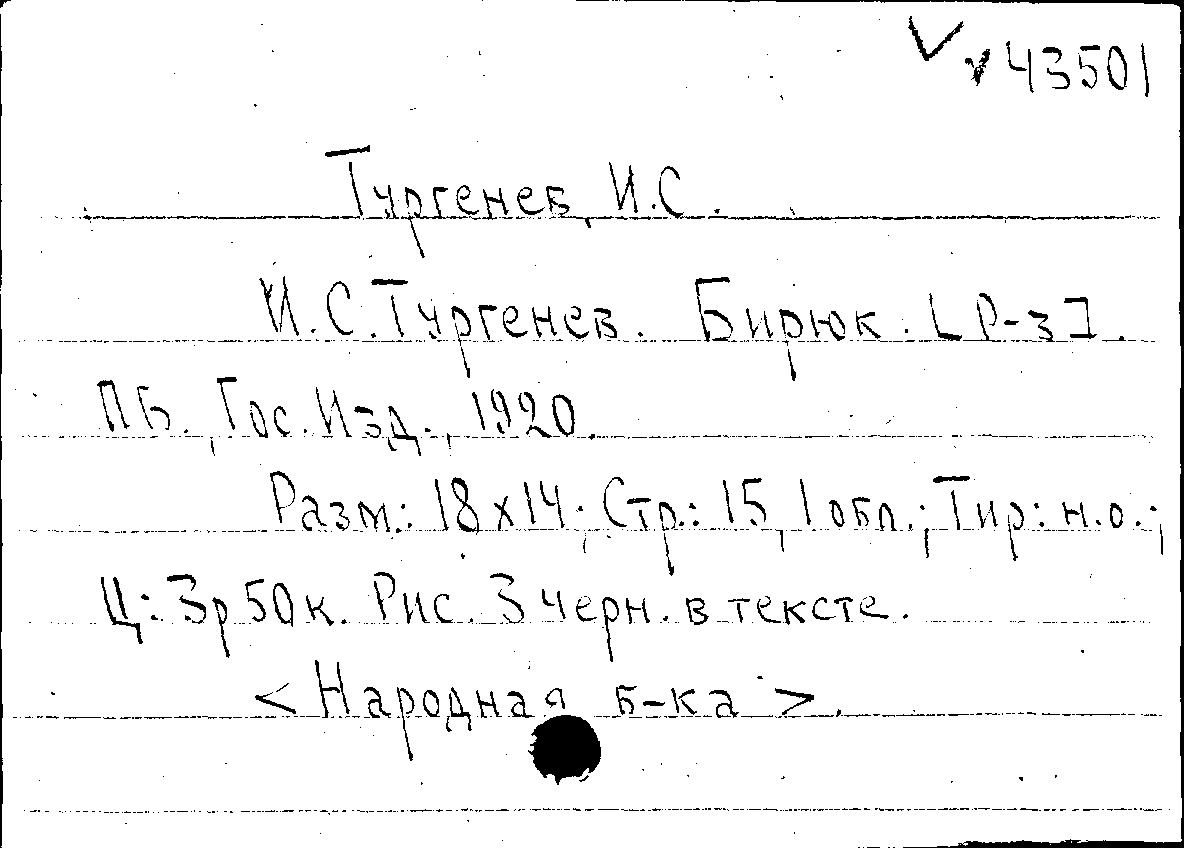 43501
Тургенев, И.С.
И.С.Тургенев. Бирюк. [Р-з].
ПБ., Гос.Изд., 1920.
Разм.: 18х14; Стр.: 15, 1 обл.; Тир: н.о.;
Ц: 3р50к. Рис. 3 черн. в тексте.
<Народная б-ка>.